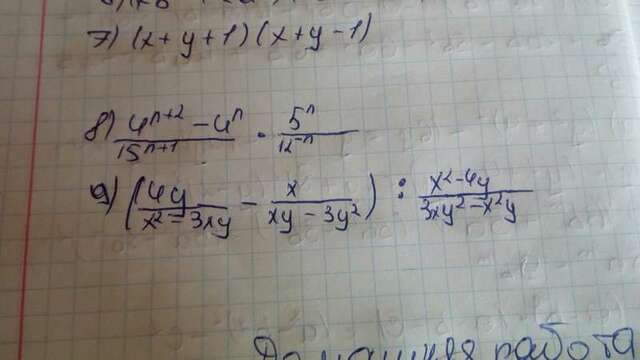 7) (x+y+1)(x+y-1)
8) (4^{n+2} - 4^n)/(15^{n+1}) · (5^n)/(12^{-n})
9) ((4y)/(x² - 3xy) - (x)/(xy - 3y²)) : (x² - 4y)/(3xy² - x²y)
Домашняя работа